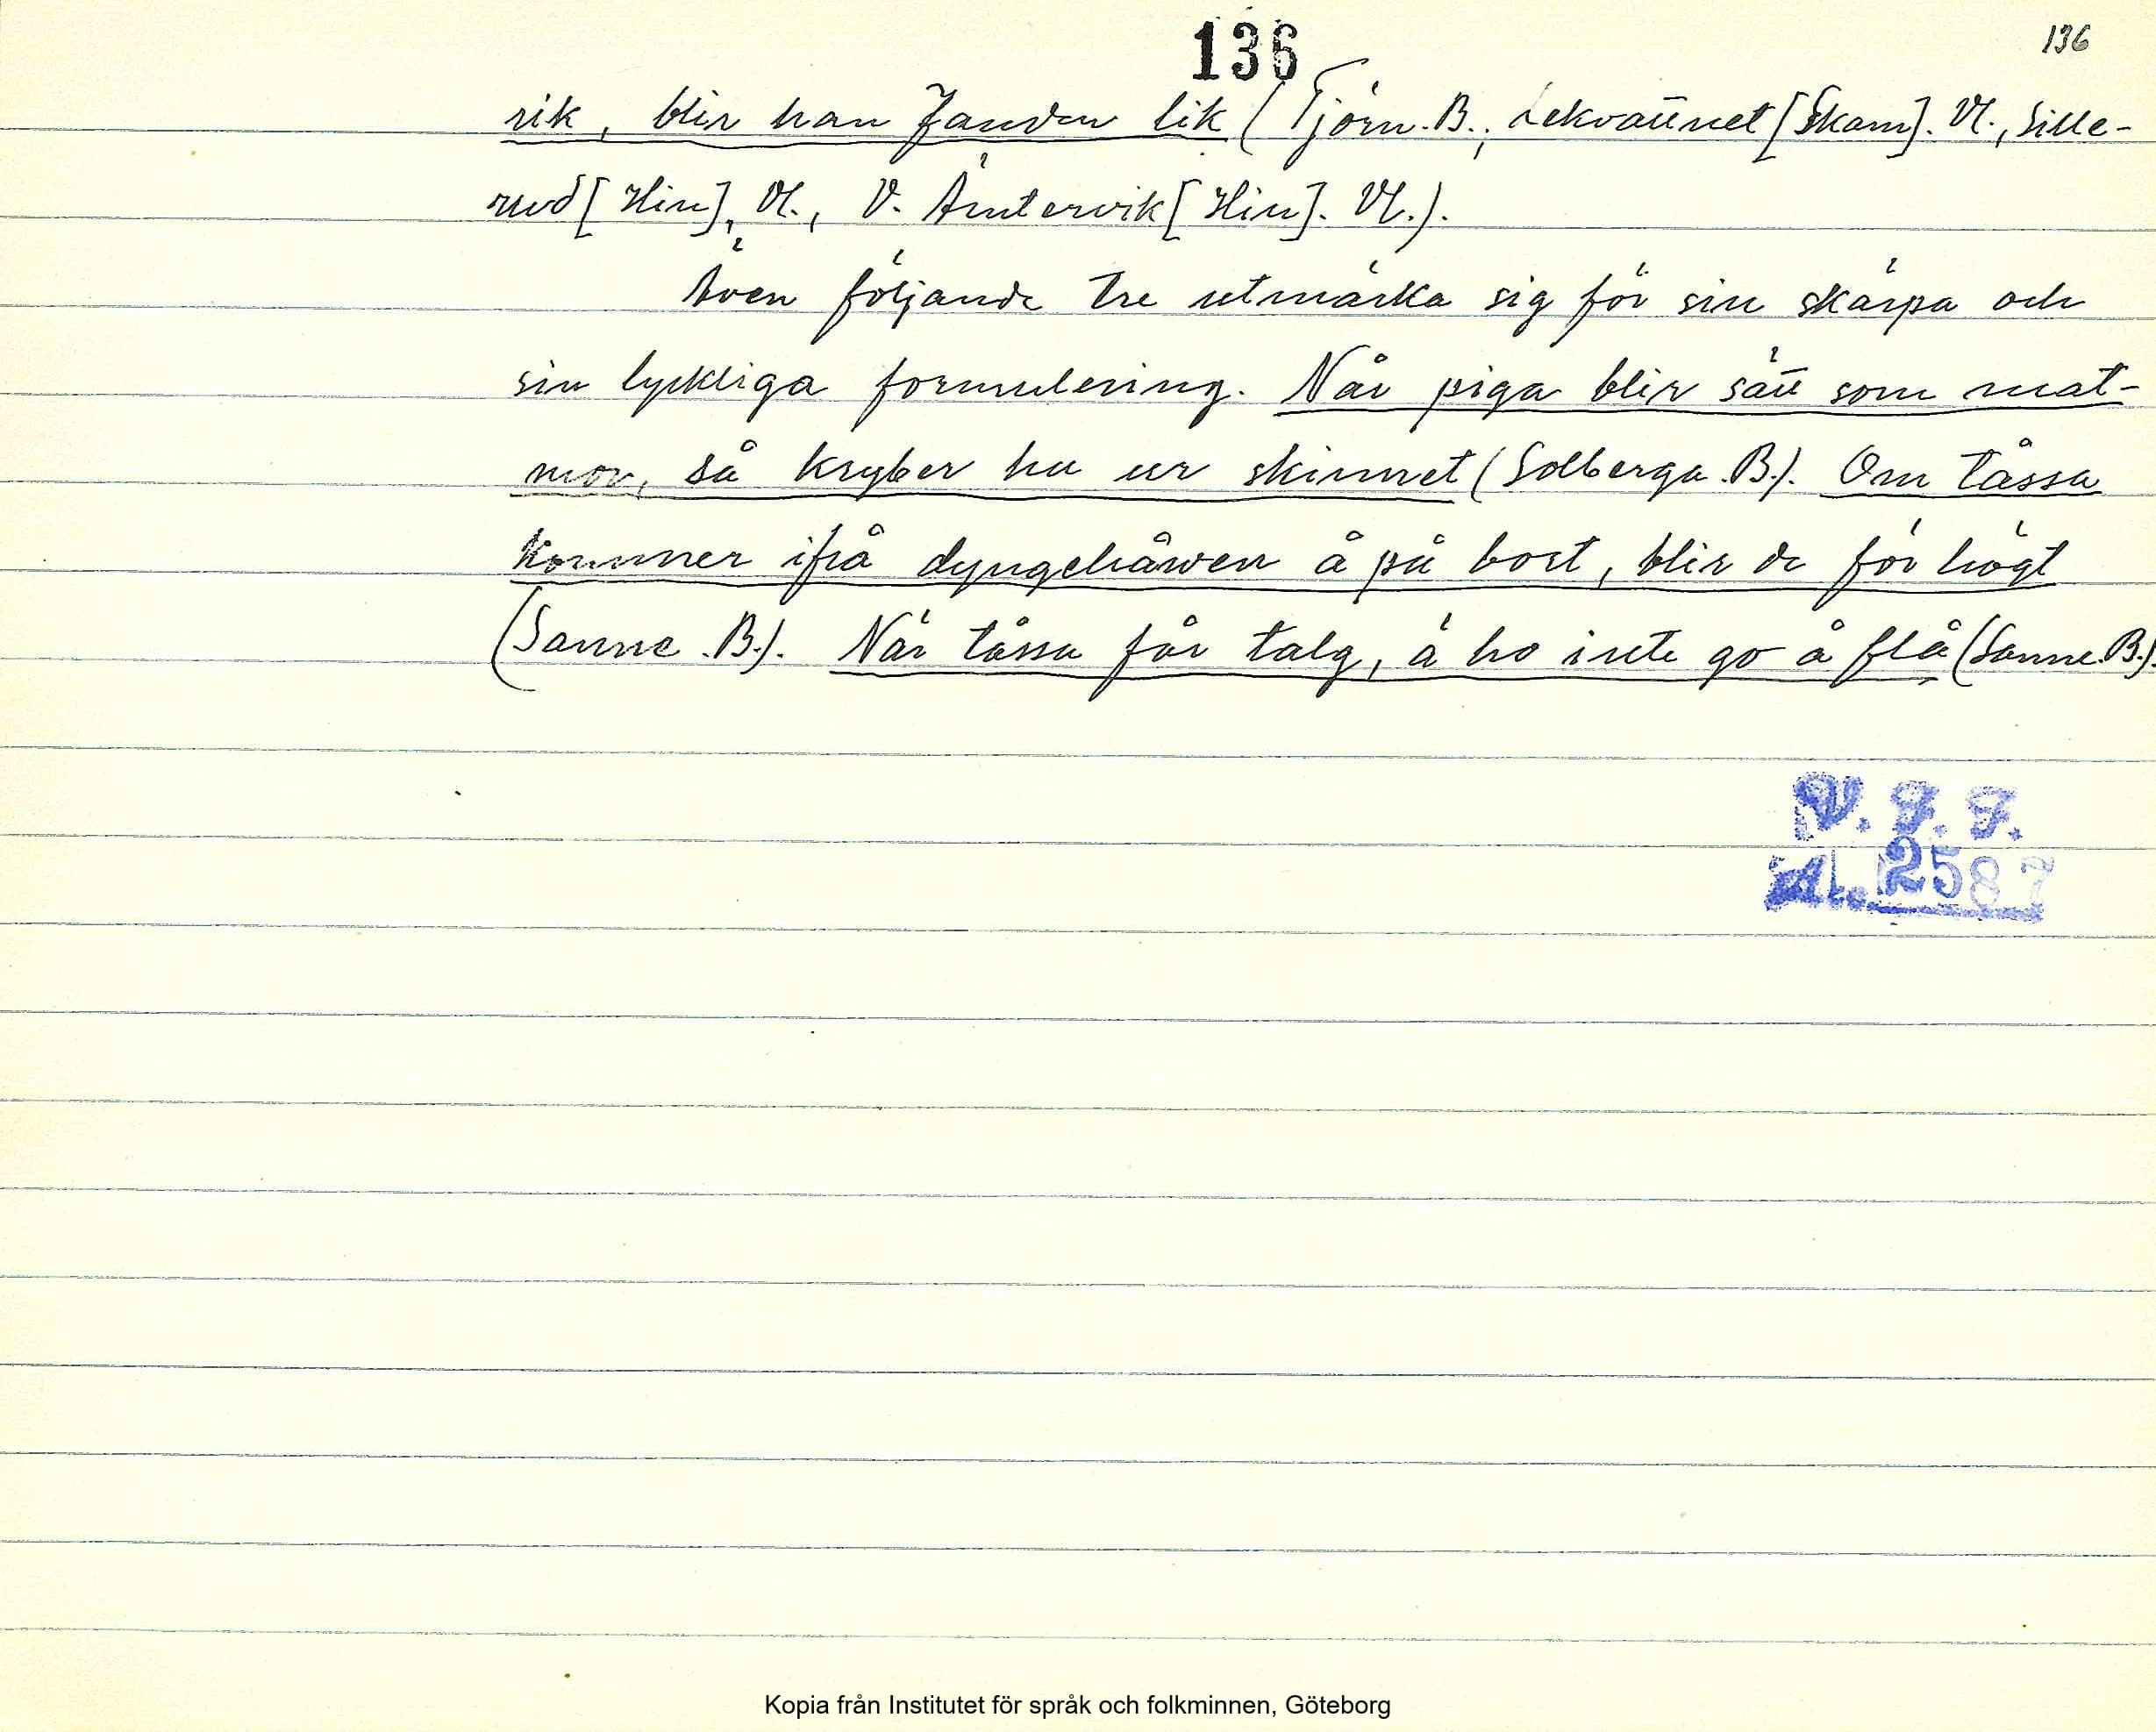 136
136
rik, blir han Fanden lik (Tjörn. B., Lekvattnet [Skam]. Vl., Sille-
rud [Hin], Vl., V. Ämtervik [Hin]. Vl.).
Även följande tre utmärka sig för sin skärpa och
sin lyckliga formulering. Når piga blir sätt som mat-
mor, så kryber hu ur skinnet (Solberga. B.). Om tåssa
kommer ifrå dyngehåwen å på bort, blir de för högt
(Sanne. B.). När tåssa får talg, ä ho inte go å flå (Sanne. B.).
V. F. F.
2587
Kopia från Institutet för språk och folkminnen, Göteborg